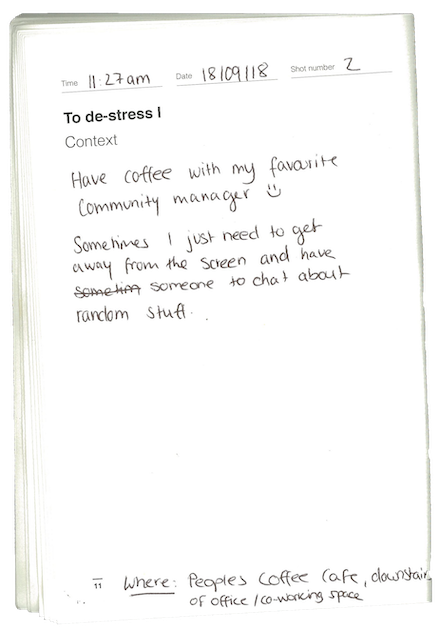 Time 11:27am Date 18/09/18 Shot number 2
To de-stress I
Context
Have coffee with my favourite
Community manager :)
Sometimes I just need to get
away from the screen and have
sometim someone to chat about
random stuff.
11 Where: Peoples Coffee Cafe, downstairs
of office / co-working space